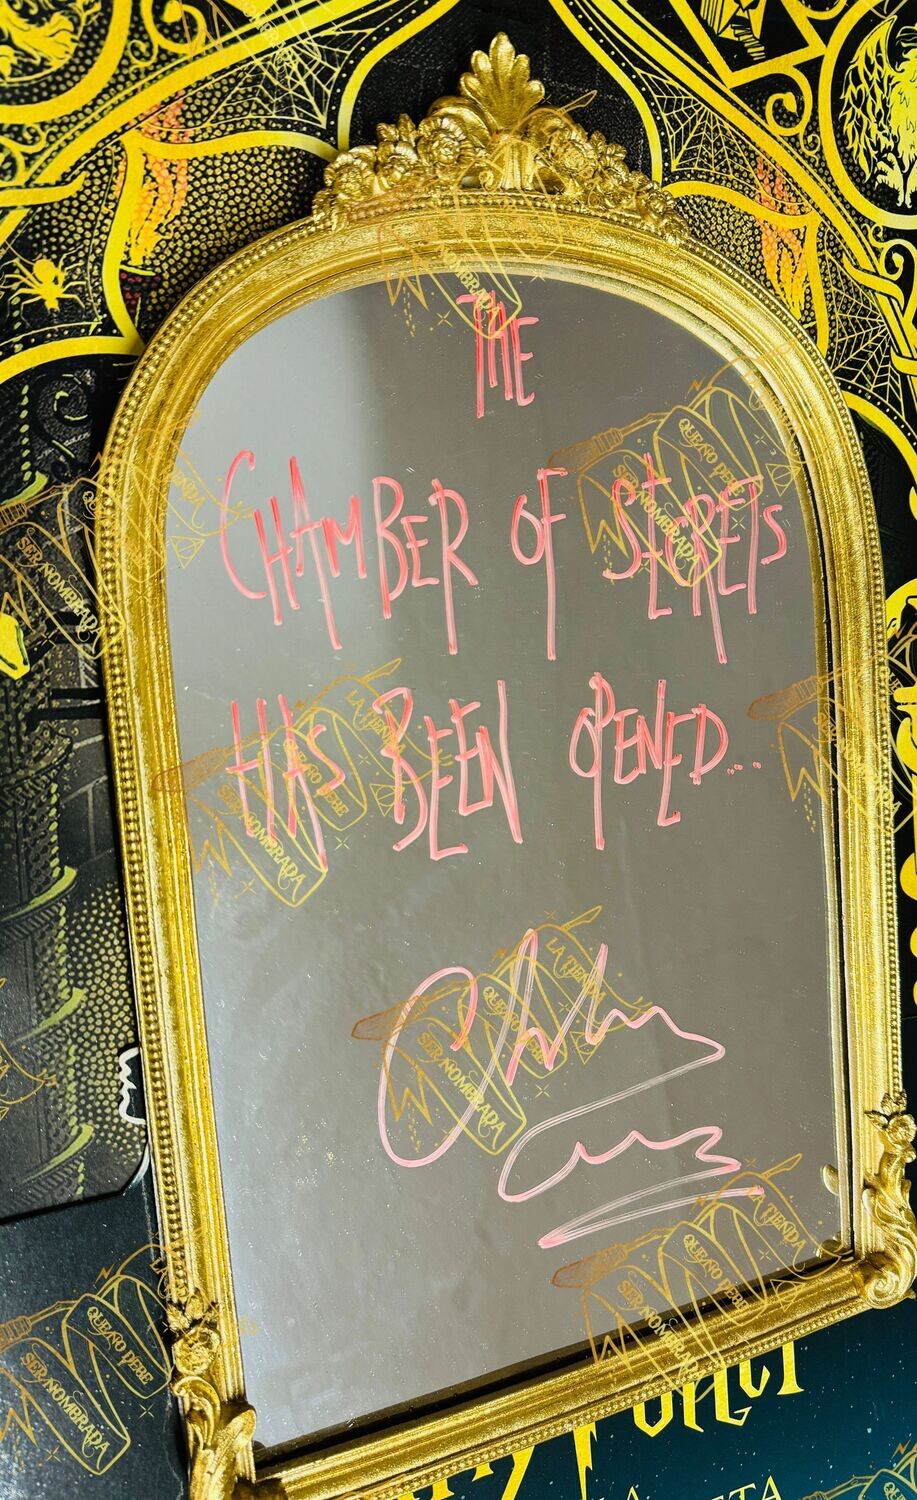 THE
CHAMBER OF SECRETS
HAS BEEN OPENED...
LA TIENDA
QUE NO DEBE
SER NOMBRADA